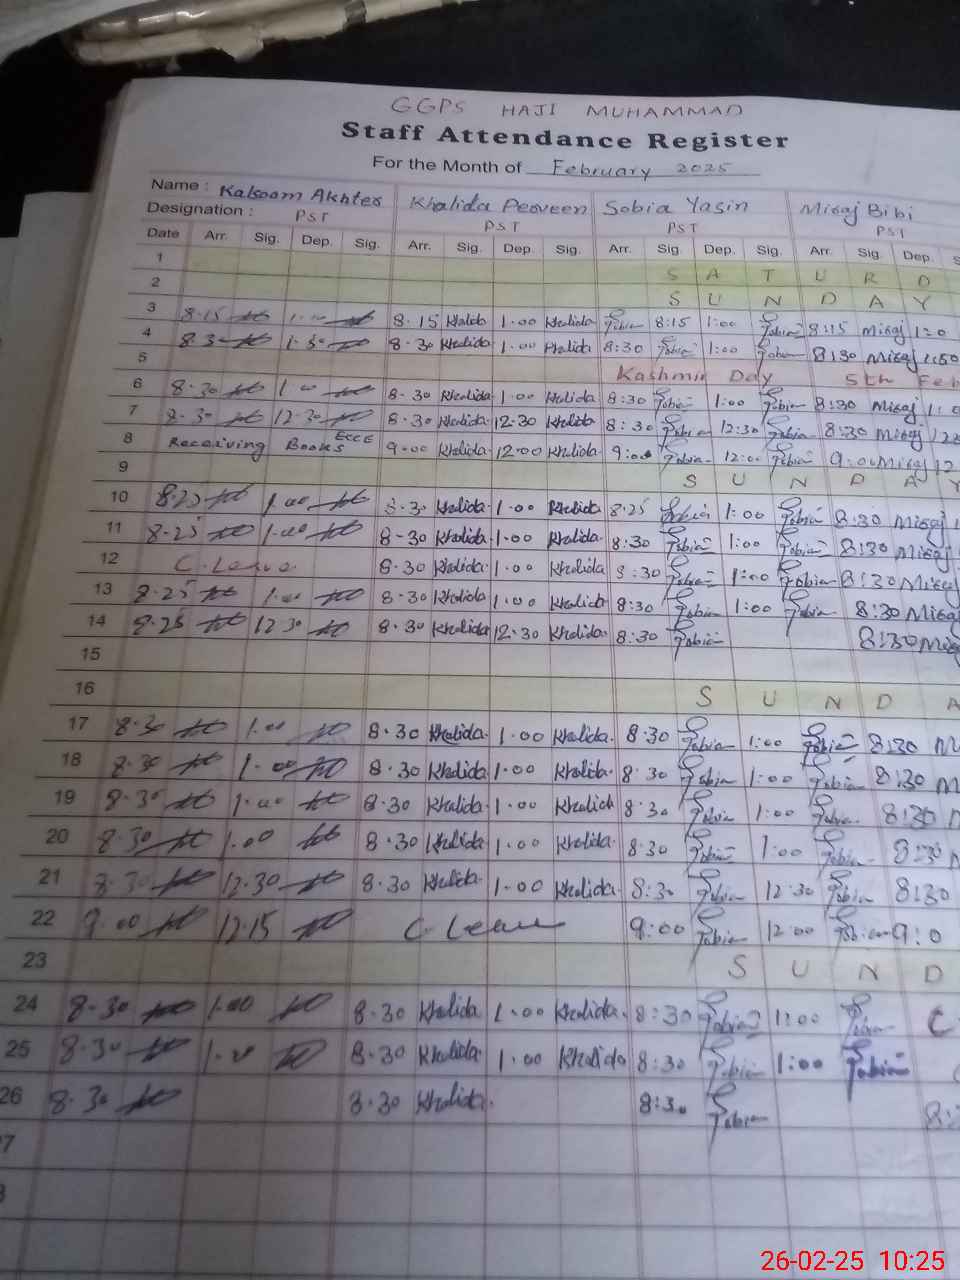 GGPS HAJI MUHAMMAD
Staff Attendance Register
For the Month of February 2025
Name : Kalsoom Akhter Khalida Perveen Sobia Yasin Misaj Bibi
Designation : PST PST PST PST
Date Arr. Sig. Dep. Sig. Arr. Sig. Dep. Sig. Arr. Sig. Dep. Sig. Arr. Sig. Dep. S
1 S A T U R D
2 S U N D A Y
3 8.15 8.15 Khalida 1.00 Khalida Sobia 8:15 1:00 Sobia 8:15 Misaj 1:0
4 8.30 1.00 Khalida 8:30 Sobia 1:00 Sobia 8:30 Misaj
5 Kashmir Day 5th Feb
6 8.30 8.30 Khalida 1.00 Khalida 8:30 Sobia 1:00 Sobia 8:30 Misaj
7 8.30 12.30 8.30 Khalida 12.30 Khalida 8:30 Sobia 12:30 Sobia 8:30 Misaj
8 Receiving Books ECCE 9.00 Khalida 12.00 Khalida 9:00 Sobia 12:00 Sobia 9:00 Misaj 12
9 S U N D A Y
10 8.25 1.00 8.30 Khalida 1.00 Khalida 8:25 Sobia 1:00 Sobia 8:30 Misaj
11 8.25 1.00 8-30 Khalida 1.00 Khalida 8:30 Sobia 1:00 Sobia 8:30 Misaj
12 C.Leave 8.30 Khalida 1.00 Khalida 8:30 Sobia 1:00 Sobia 8:30 Misaj
13 8.25 1.00 8.30 Khalida 1.00 Khalida 8:30 Sobia 1:00 Sobia 8:30 Misaj
14 8.25 12.30 8.30 Khalida 12.30 Khalida 8:30 Sobia 8:30 Misaj
15
16 S U N D A
17 8.30 1.00 8.30 Khalida 1.00 Khalida 8:30 Sobia 1:00 Sobia 8:30 M
18 8.30 1.00 8.30 Khalida 1.00 Khalida 8:30 Sobia 1:00 Sobia 8:30 M
19 8.30 1.00 8.30 Khalida 1.00 Khalida 8:30 Sobia 1:00 Sobia 8:30
20 8.30 1.00 8.30 Khalida 1.00 Khalida 8:30 Sobia 1:00 Sobia 8:30
21 8.30 12.30 8.30 Khalida 1.00 Khalida 8:30 Sobia 12:30 Sobia 8:30
22 9.00 12.15 C.Leave 9:00 Sobia 12:00 Sobia 9:0
23 S U N D
24 8.30 1.00 8.30 Khalida 1.00 Khalida 8:30 Sobia 1:00 Sobia C
25 8.30 1.00 8.30 Khalida 1.00 Khalida 8:30 Sobia 1:00 Sobia
26 8.30 8.30 Khalida 8:30 Sobia
7
26-02-25 10:25